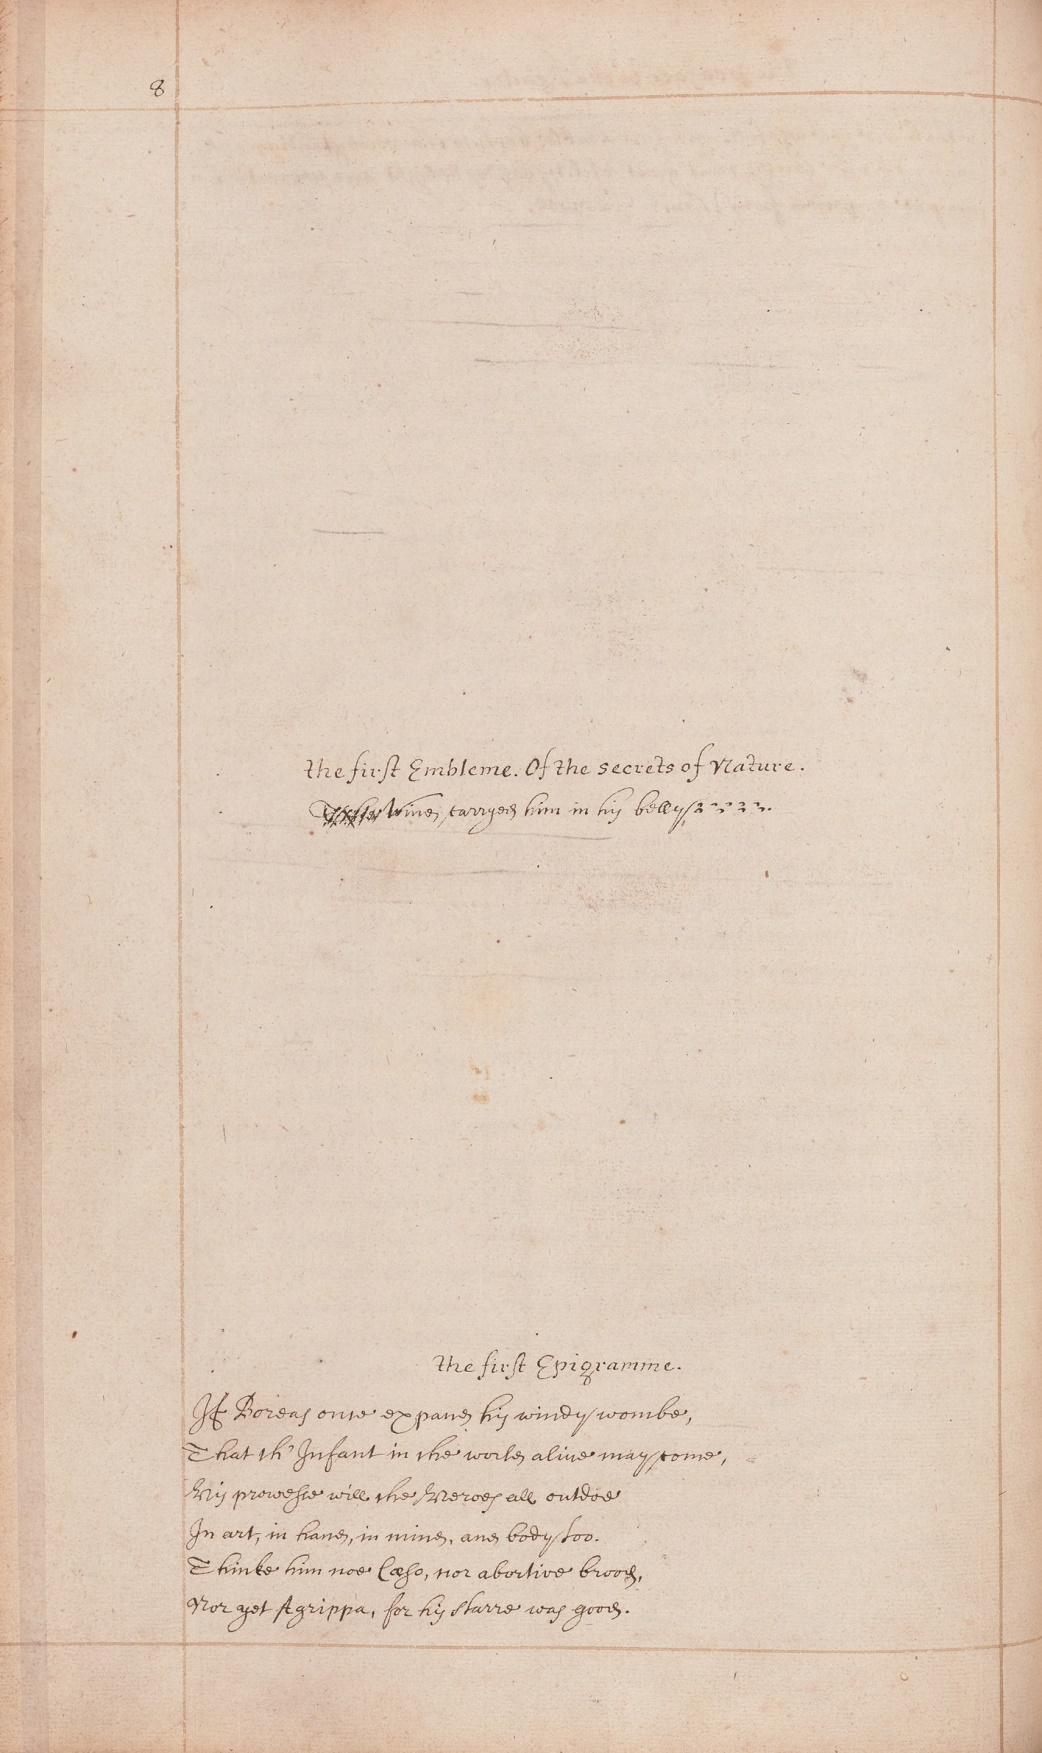 8
the first Embleme. Of the secrets of Nature.
Wind carryed him in his belly
the first Epigramme.
If Boreas once expand his windy wombe,
That th' Infant in the world alive may come,
His prowesse will the Heroes all outdoe
In art, in hand, in mind, and body too.
Thinke him noe Cæso, nor abortive brood,
Nor yet Agrippa, for his starre was good.